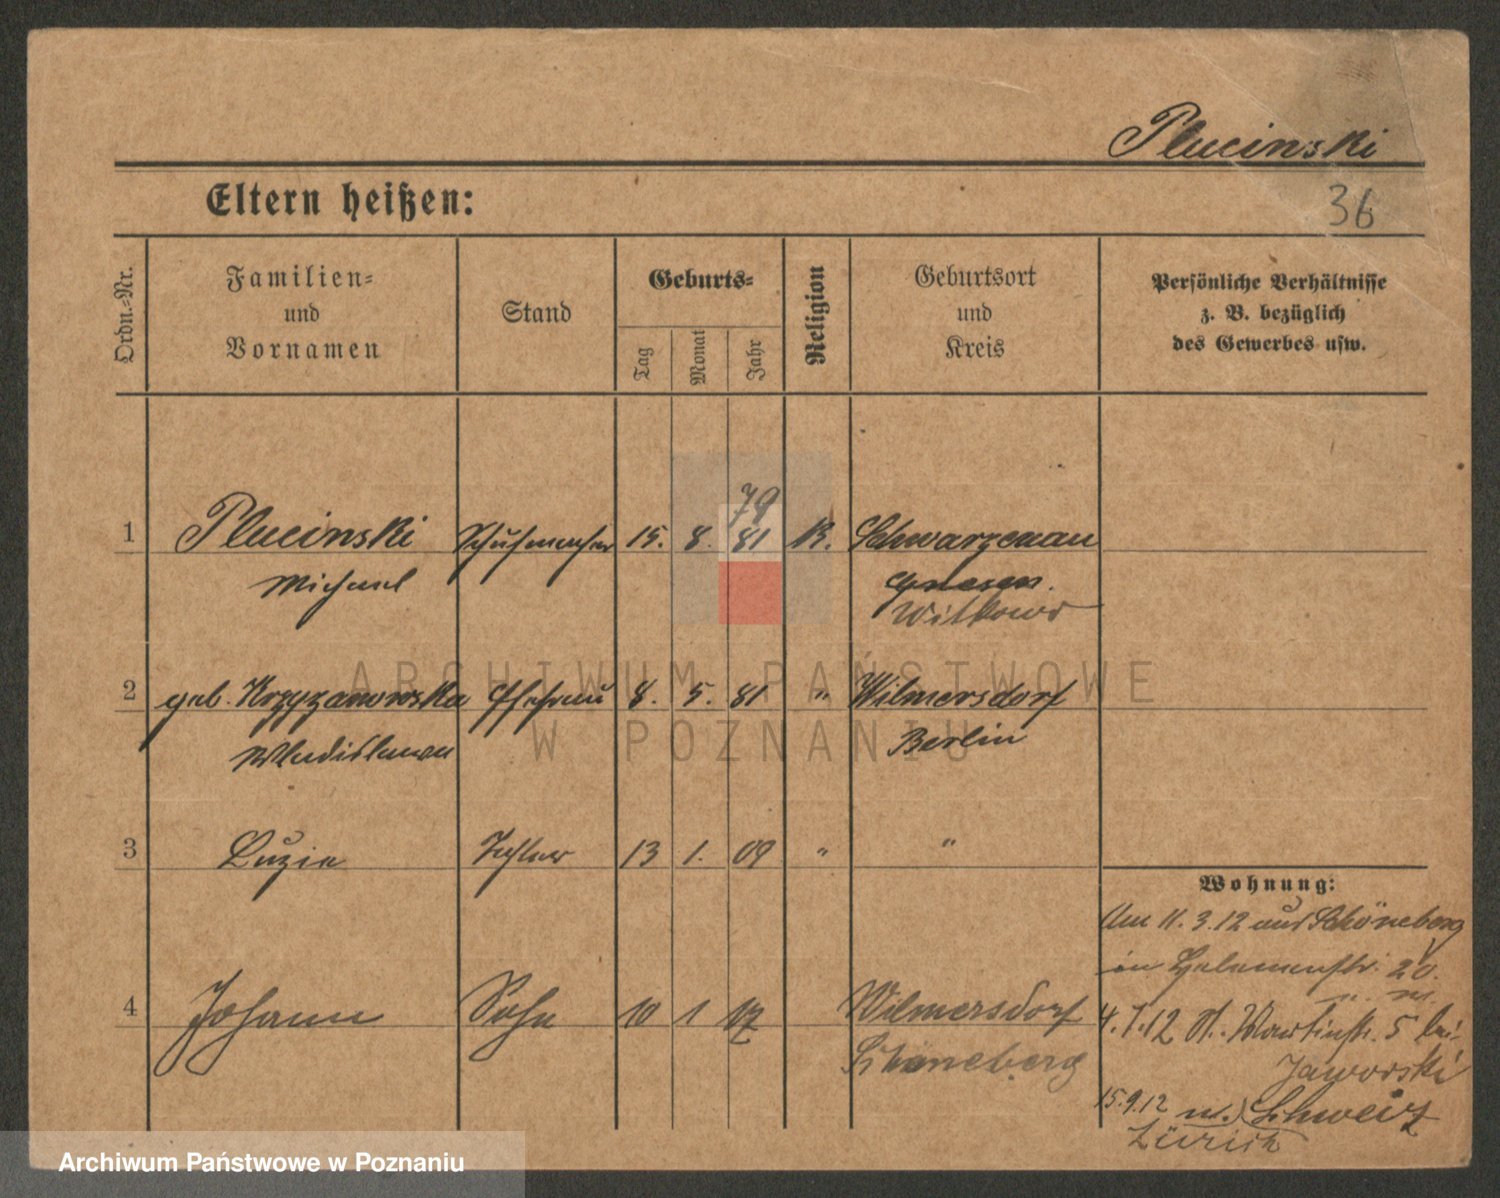 Plucinski
Eltern heißen:
36
Ordn.=Nr.
Familien=
und
Vornamen
Stand
Geburts=
Tag
Monat
Jahr
Religion
Geburtsort
und
Kreis
Persönliche Verhältnisse
z. B. bezüglich
des Gewerbes usw.
79
1 Plucinski Schuhmacher 15. 8. 81 K. Schwarzenau
Michael Gnesen.
Witkowo
2 geb. Krzyzanowska Ehefrau 8. 5. 81 " Wilmersdorf
Wladislawa Berlin
3 Luzie Tochter 13 1. 09 " "
Wohnung:
Am 11.3.12 aus Schöneberg
in 20.
4 Johann Sohn 10 1 12 Wilmersdorf
Schöneberg
4.7.12 St. Martinstr. 5 bei
Jaworski
15.9.12 n. Schweiz
Zürich
ARCHIWUM PAŃSTWOWE
W POZNANIU
Archiwum Państwowe w Poznaniu